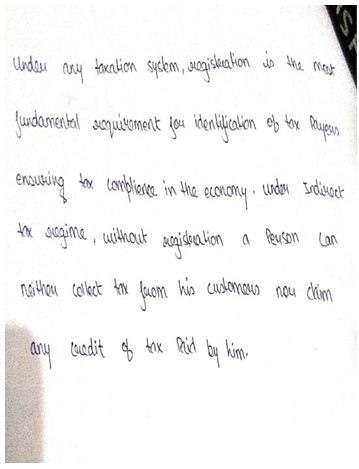 Under any taxation system, registration is the most
fundamental requirement for identification of tax Payers
ensuring tax complience in the economy. under Indirect
tax regime, without registeration a Person can
neither collect tax from his customers nor claim
any credit of tax Paid by him.